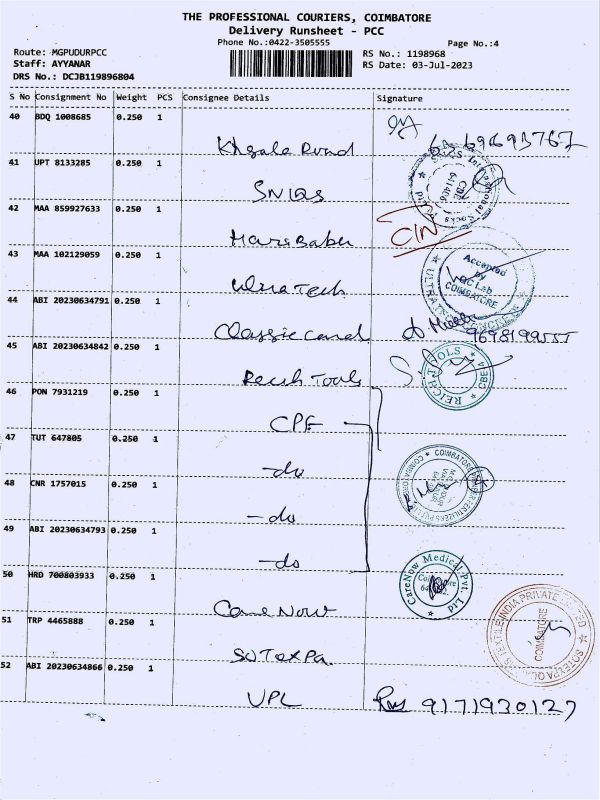 THE PROFESSIONAL COURIERS, COIMBATORE
Delivery Runsheet - PCC
Phone No.:0422-3505555
Page No.:4
Route: MGPUDURPCC
RS No.: 1198968
Staff: AYYANAR
RS Date: 03-Jul-2023
DRS No.: DCJB119896804
S No Consignment No Weight PCS Consignee Details Signature
40 BDQ 1008685 0.250 1
41 UPT 8133285 0.250 1
SNIQS
42 MAA 859927633 0.250 1
CIN
Hari Babu
43 MAA 102129059 0.250 1
Accepted
by
QC Lab
COIMBATORE
Ultra Tech
44 ABI 20230634791 0.250 1
Classic Canal
9698199555
45 ABI 20230634842 0.250 1
REICH TOOLS
CBE-4
Reich Tools
46 PON 7931219 0.250 1
CPF
47 TUT 647805 0.250 1
-do
48 CNR 1757015 0.250 1
-do
49 ABI 20230634793 0.250 1
-do
50 HRD 700803933 0.250 1
CareNow Medical Pvt. Ltd
Care Now
51 TRP 4465888 0.250 1
SOTEXPA TEXTILE INDIA PRIVATE LIMITED
COIMBATORE
SOTEXPA
52 ABI 20230634866 0.250 1
UPL
9171930127